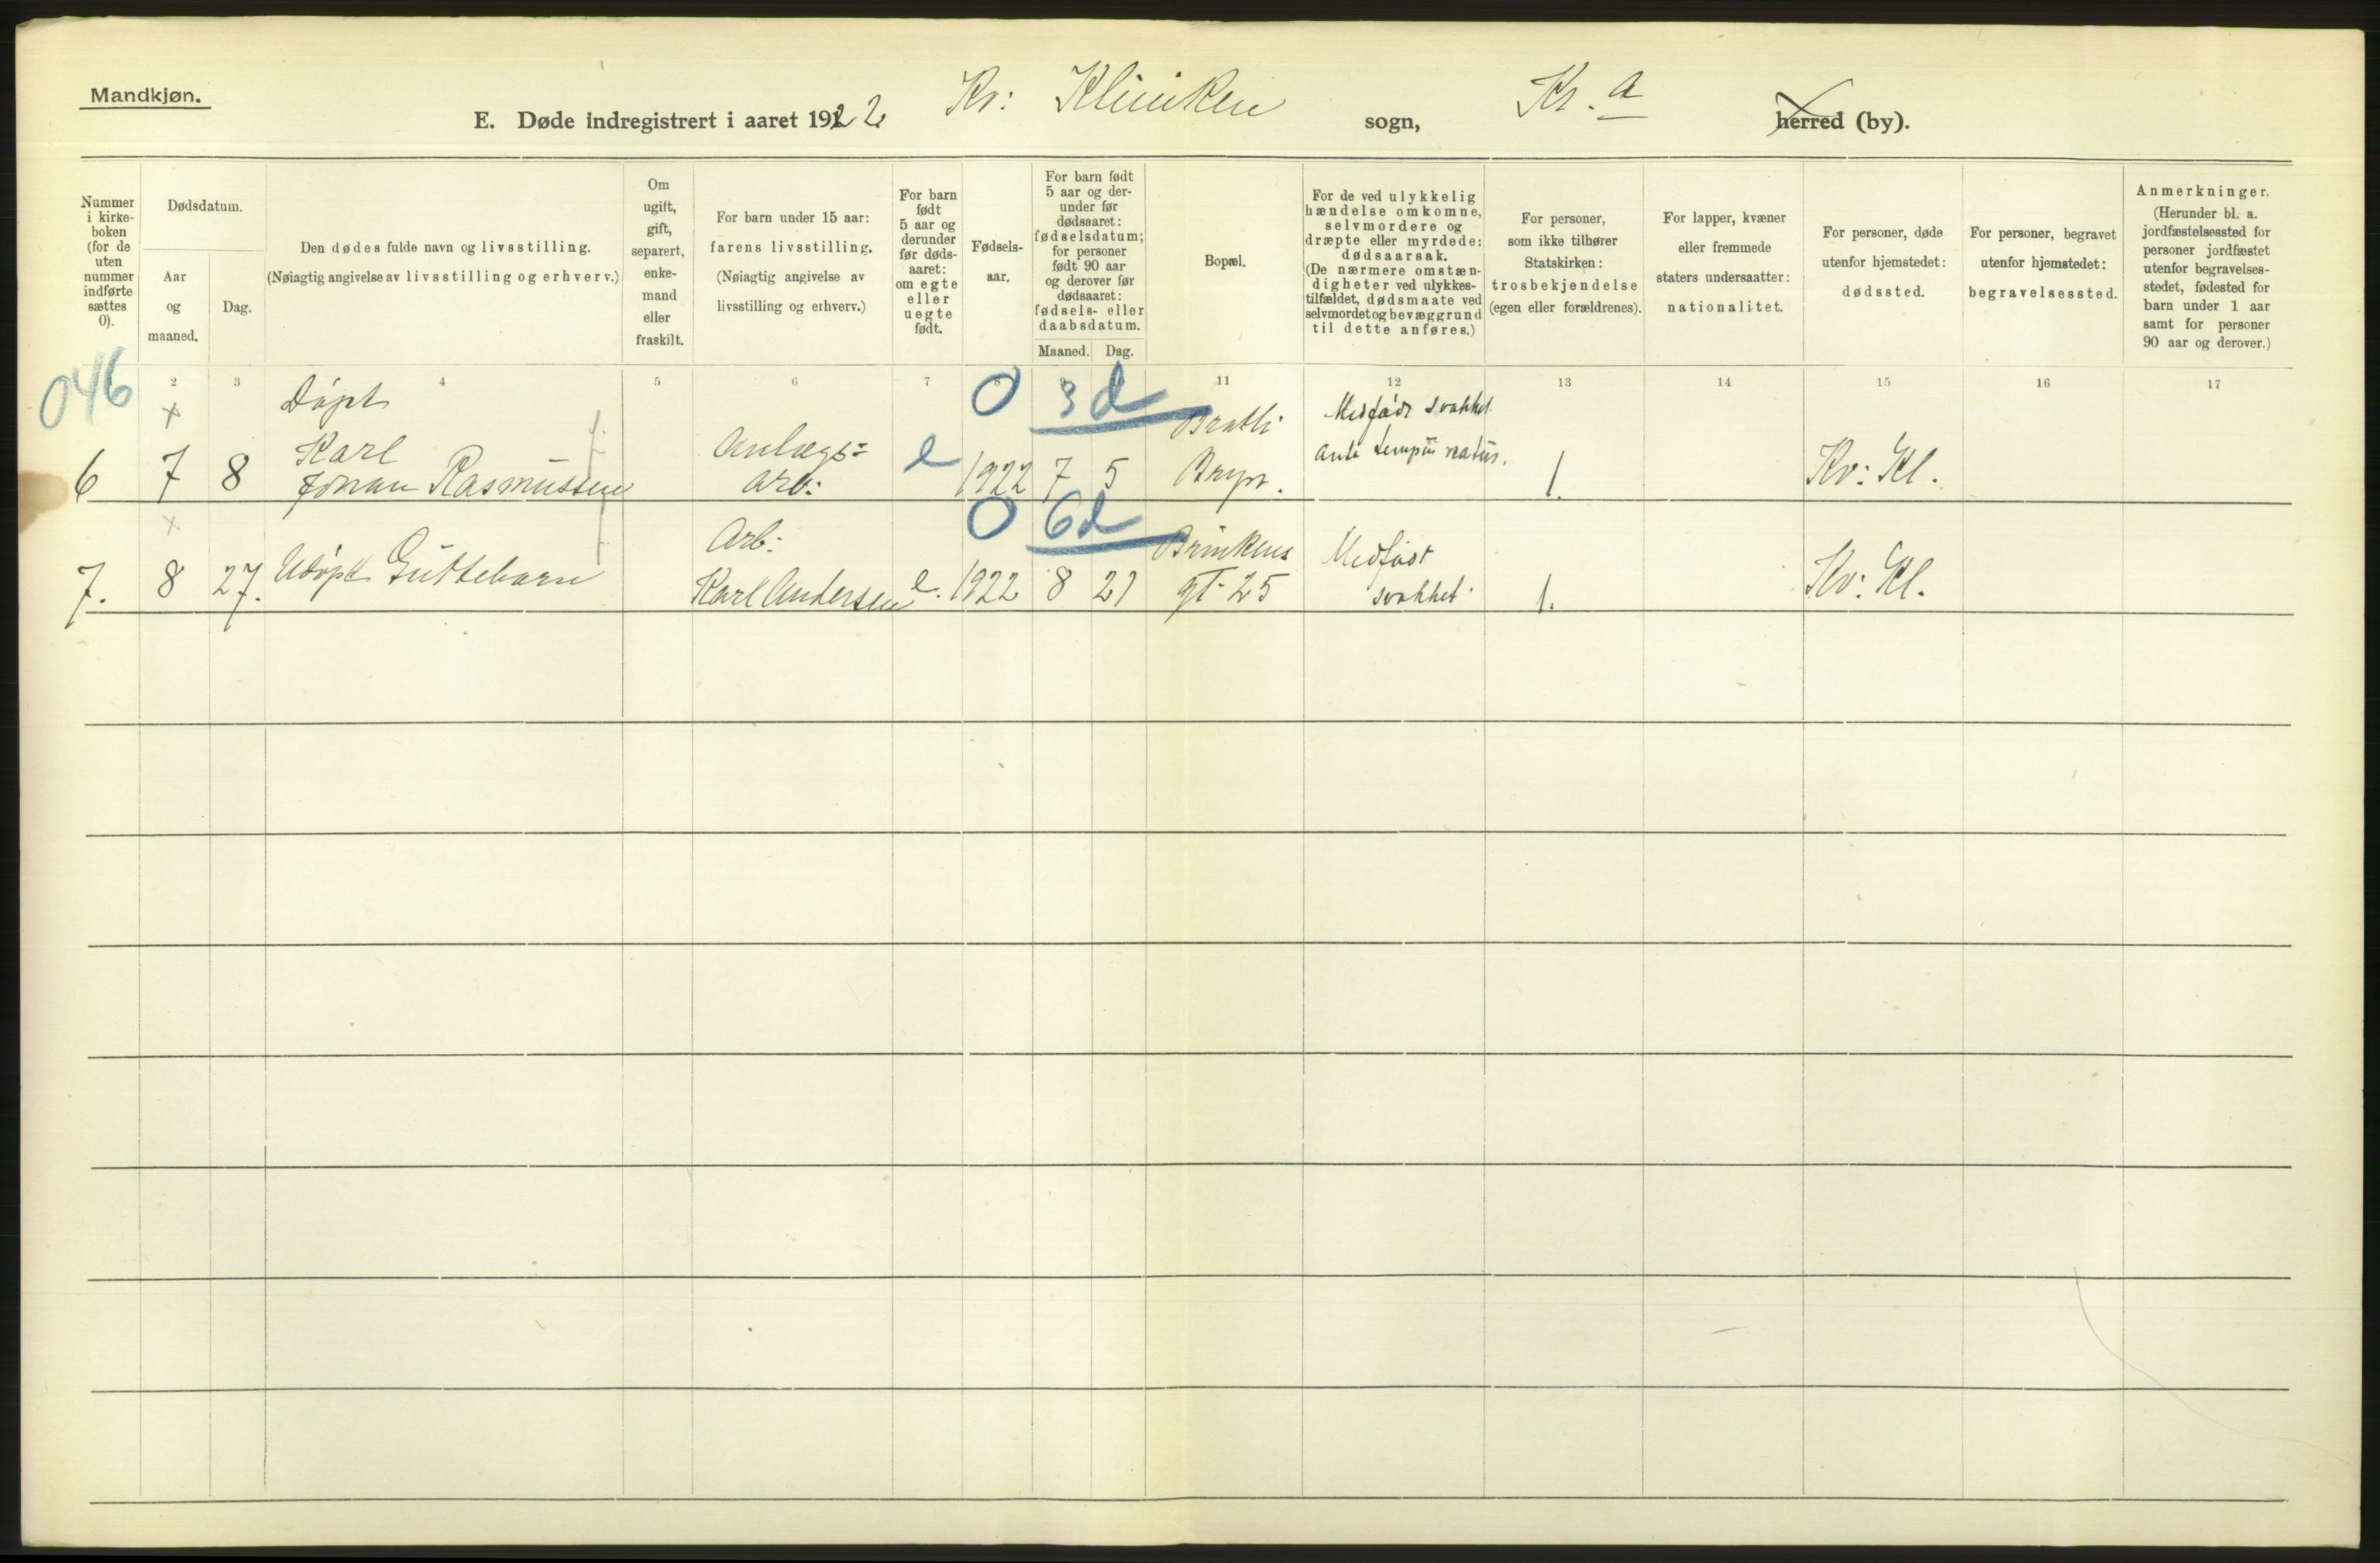 Mandkjøn.
E. Døde indregistrert i aaret 1922 Kv: Kliniken sogn, Kr.a herred (by).
Nummer
i kirke-
boken
(for de
uten
nummer
indførte
sættes
0).
Dødsdatum.
Aar
og
maaned.
Dag.
Den dødes fulde navn og livsstilling.
(Nøiagtig angivelse av livsstilling og erhverv.)
Om
ugift,
gift,
separert,
enke-
mand
eller
fraskilt.
For barn under 15 aar:
farens livsstilling.
(Nøiagtig angivelse av
livsstilling og erhverv.)
For barn
født
5 aar og
derunder
før døds-
aaret:
om egte
eller
uegte
født.
Fødsels-
aar.
For barn født
5 aar og der-
under før
dødsaaret:
fødselsdatum;
for personer
født 90 aar
og derover før
dødsaaret:
fødsels- eller
daabsdatum.
Maaned. Dag.
Bopæl.
For de ved ulykkelig
hændelse omkomne,
selvmordere og
dræpte eller myrdede:
dødsaarsak.
(De nærmere omstæn-
digheter ved ulykkes-
tilfældet, dødsmaate ved
selvmordet og bevæggrund
til dette anføres.)
For personer,
som ikke tilhører
Statskirken:
trosbekjendelse
(egen eller forældrenes).
For lapper, kvæner
eller fremmede
staters undersaatter:
nationalitet.
For personer, døde
utenfor hjemstedet:
dødssted.
For personer, begravet
utenfor hjemstedet:
begravelsessted.
Anmerkninger.
(Herunder bl. a.
jordfæstelsessted for
personer jordfæstet
utenfor begravelses-
stedet, fødested for
barn under 1 aar
samt for personer
90 aar og derover.)
046 2 3 4 5 6 7 11 12 13 14 15 16 17
0 3d
6 7 8
Døpt
Karl
Johan Rasmussen
Anlægs=
arb:
e 1922 7 5
Bratli
Bryn.
Medfødt svakhet
ante tempus natus.
1.
Kv: Kl.
0 6d
7. 8 27.
Udøpt Guttebarn
Arb:
Karl Andersen
e. 1922 8 21
Brinkens
gt. 25
Medfødt
svakhet.
1.
Kv: Kl.